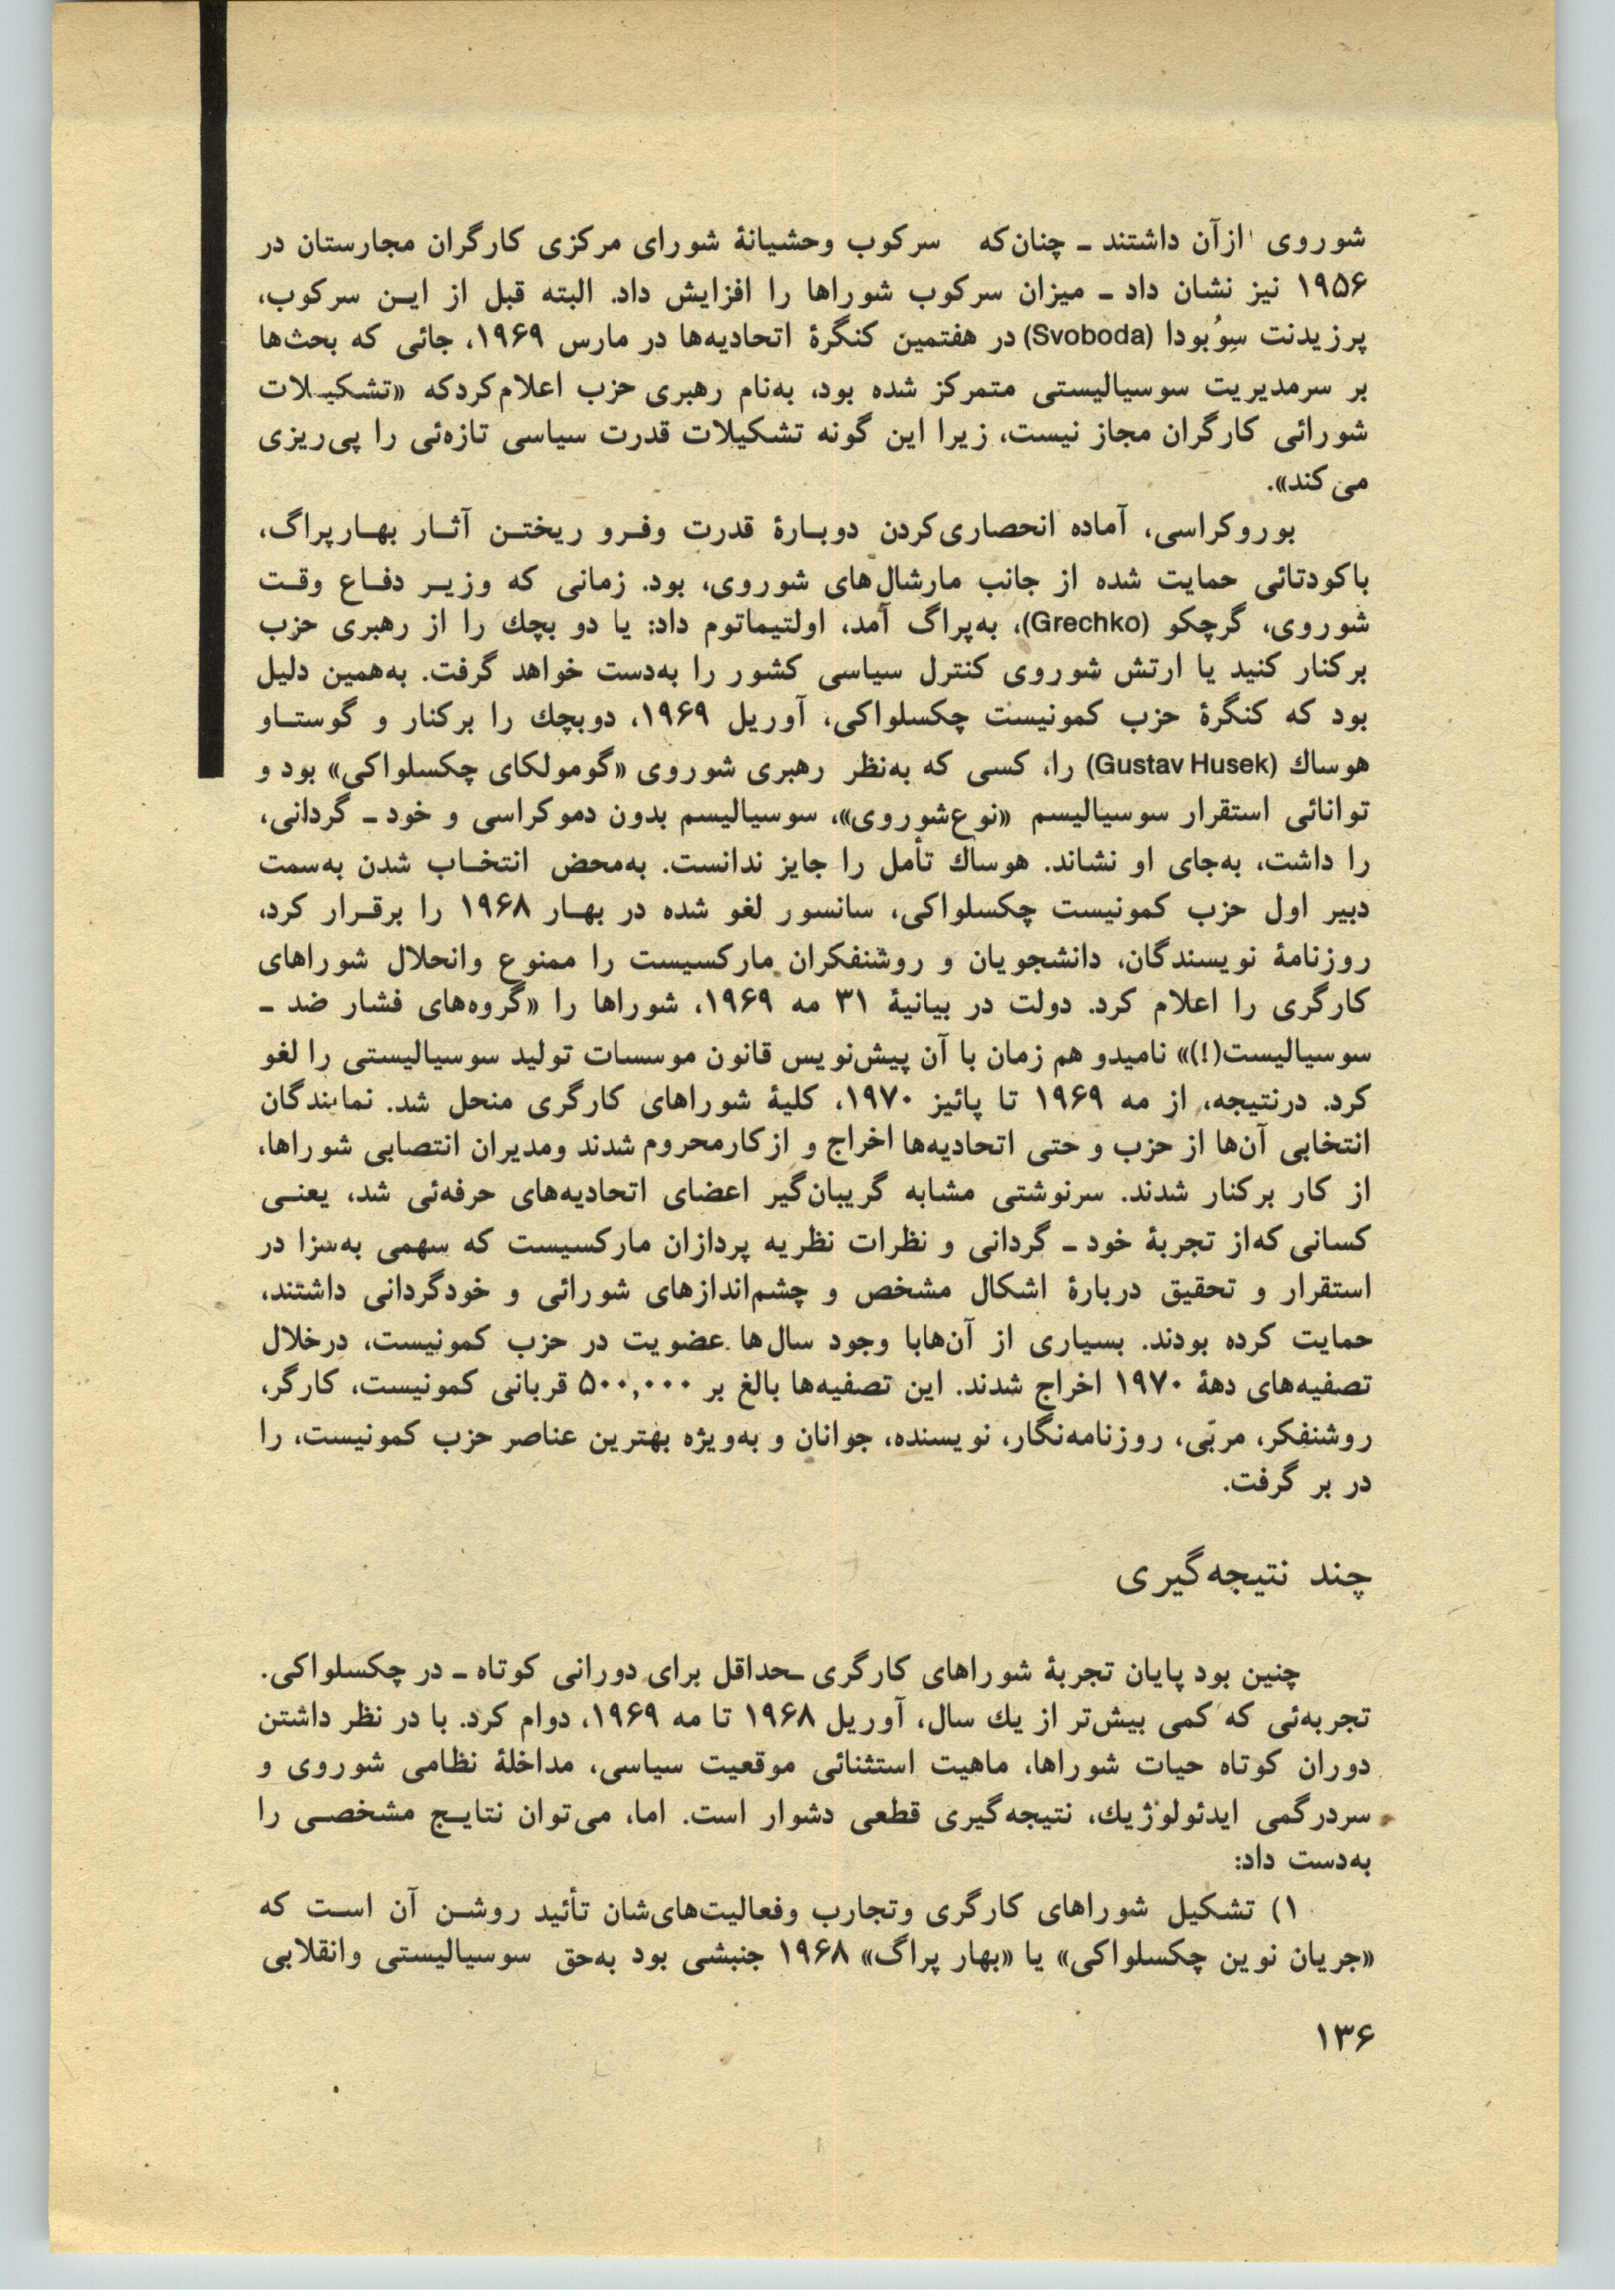 شوروی ازآن داشتند ـ چنان‌که سرکوب وحشیانهٔ شورای مرکزی کارگران مجارستان در
۱۹۵۶ نیز نشان داد ـ میزان سرکوب شوراها را افزایش داد. البته قبل از ایـن سرکوب،
پرزیدنت سِوُبودا (Svoboda) در هفتمین کنگرهٔ اتحادیه‌ها در مارس ۱۹۶۹، جائی که بحث‌ها
بر سرمدیریت سوسیالیستی متمرکز شده بود، به‌نام رهبری حزب اعلام‌کردکه «تشکیـلات
شورائی کارگران مجاز نیست، زیرا این گونه تشکیلات قدرت سیاسی تازه‌ئی را پی‌ریزی
می‌کند».
بوروکراسی، آماده انحصاری‌کردن دوبـارهٔ قدرت وفـرو ریختـن آثـار بهـارپراگ،
باکودتائی حمایت شده از جانب مارشال‌های شوروی، بود. زمانی که وزیـر دفـاع وقـت
شوروی، گرچکو (Grechko)، به‌پراگ آمد، اولتیماتوم داد: یا دو بچك را از رهبری حزب
برکنار کنید یا ارتش شوروی کنترل سیاسی کشور را به‌دست خواهد گرفت. به‌همین دلیل
بود که کنگرهٔ حزب کمونیست چکسلواکی، آوریل ۱۹۶۹، دوبچك را برکنار و گوستـاو
هوساك (Gustav Husek) را، کسی که به‌نظر رهبری شوروی «گومولکای چکسلواکی» بود و
توانائی استقرار سوسیالیسم «نوع‌شوروی»، سوسیالیسم بدون دموکراسی و خود ـ گردانی،
را داشت، به‌جای او نشاند. هوساك تأمل را جایز ندانست. به‌محض انتخـاب شدن به‌سمت
دبیر اول حزب کمونیست چکسلواکی، سانسور لغو شده در بهـار ۱۹۶۸ را برقـرار کرد،
روزنامهٔ نویسندگان، دانشجویان و روشنفکران مارکسیست را ممنوع وانحلال شوراهای
کارگری را اعلام کرد. دولت در بیانیهٔ ۳۱ مه ۱۹۶۹، شوراها را «گروه‌های فشار ضد ـ
سوسیالیست(!)» نامیدو هم زمان با آن پیش‌نویس قانون موسسات تولید سوسیالیستی را لغو
کرد. درنتیجه، از مه ۱۹۶۹ تا پائیز ۱۹۷۰، کلیهٔ شوراهای کارگری منحل شد. نمایندگان
انتخابی آن‌ها از حزب و حتی اتحادیه‌ها اخراج و ازکارمحروم شدند ومدیران انتصابی شوراها،
از کار برکنار شدند. سرنوشتی مشابه گریبان‌گیر اعضای اتحادیه‌های حرفه‌ئی شد، یعنـی
کسانی که‌از تجربهٔ خود ـ گردانی و نظرات نظریه پردازان مارکسیست که سهمی به‌سزا در
استقرار و تحقیق دربارهٔ اشکال مشخص و چشم‌اندازهای شورائی و خودگردانی داشتند،
حمایت کرده بودند. بسیاری از آن‌هابا وجود سال‌ها عضویت در حزب کمونیست، درخلال
تصفیه‌های دههٔ ۱۹۷۰ اخراج شدند. این تصفیه‌ها بالغ بر ۵۰۰,۰۰۰ قربانی کمونیست، کارگر،
روشنفکر، مربّی، روزنامه‌نگار، نویسنده، جوانان و به‌ویژه بهترین عناصر حزب کمونیست، را
در بر گرفت.
چند نتیجه‌گیری
چنین بود پایان تجربهٔ شوراهای کارگری ـحداقل برای دورانی کوتاه ـ در چکسلواکی.
تجربه‌ئی که کمی بیش‌تر از یك سال، آوریل ۱۹۶۸ تا مه ۱۹۶۹، دوام کرد. با در نظر داشتن
دوران کوتاه حیات شوراها، ماهیت استثنائی موقعیت سیاسی، مداخلهٔ نظامی شوروی و
سردرگمی ایدئولوژیك، نتیجه‌گیری قطعی دشوار است. اما، می‌توان نتایـج مشخصـی را
به‌دست داد:
۱) تشکیل شوراهای کارگری وتجارب وفعالیت‌های‌شان تأئید روشـن آن اسـت که
«جریان نوین چکسلواکی» یا «بهار پراگ» ۱۹۶۸ جنبشی بود به‌حق سوسیالیستی وانقلابی
۱۳۶